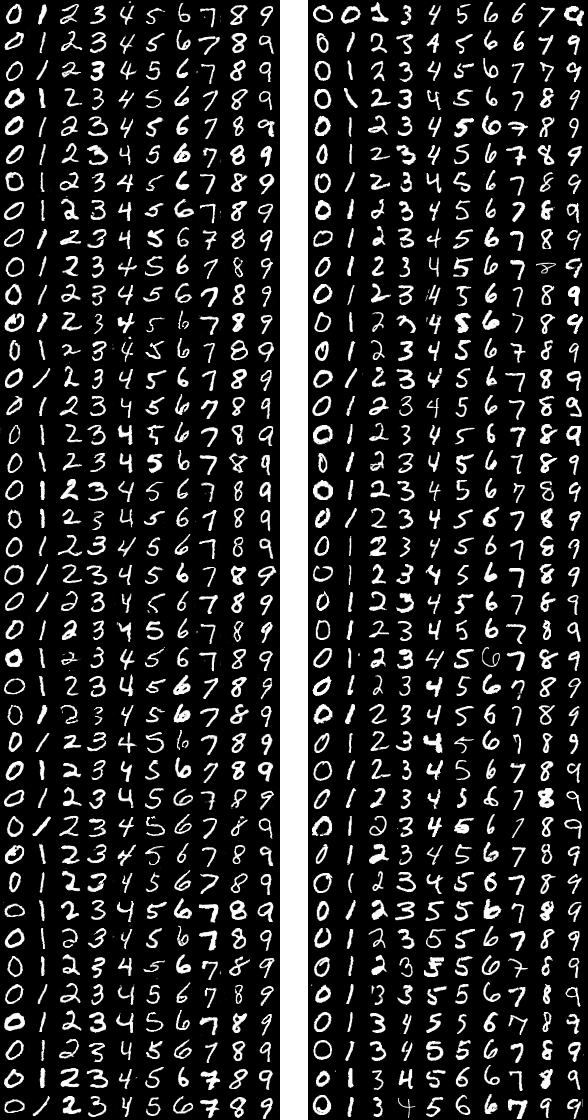 0 1 2 3 4 5 6 7 8 9
0 1 2 3 4 5 6 7 8 9
0 1 2 3 4 5 6 7 8 9
0 1 2 3 4 5 6 7 8 9
0 1 2 3 4 5 6 7 8 9
0 1 2 3 4 5 6 7 8 9
0 1 2 3 4 5 6 7 8 9
0 1 2 3 4 5 6 7 8 9
0 1 2 3 4 5 6 7 8 9
0 1 2 3 4 5 6 7 8 9
0 1 2 3 4 5 6 7 8 9
0 1 2 3 4 5 6 7 8 9
0 1 2 3 4 5 6 7 8 9
0 1 2 3 4 5 6 7 8 9
0 1 2 3 4 5 6 7 8 9
0 1 2 3 4 5 6 7 8 9
0 1 2 3 4 5 6 7 8 9
0 1 2 3 4 5 6 7 8 9
0 1 2 3 4 5 6 7 8 9
0 1 2 3 4 5 6 7 8 9
0 1 2 3 4 5 6 7 8 9
0 1 2 3 4 5 6 7 8 9
0 1 2 3 4 5 6 7 8 9
0 1 2 3 4 5 6 7 8 9
0 1 2 3 4 5 6 7 8 9
0 1 2 3 4 5 6 7 8 9
0 1 2 3 4 5 6 7 8 9
0 1 2 3 4 5 6 7 8 9
0 1 2 3 4 5 6 7 8 9
0 1 2 3 4 5 6 7 8 9
0 1 2 3 4 5 6 7 8 9
0 1 2 3 4 5 6 7 8 9
0 1 2 3 4 5 6 7 8 9
0 1 2 3 4 5 6 7 8 9
0 1 2 3 4 5 6 7 8 9
0 1 2 3 4 5 6 7 8 9
0 1 2 3 4 5 6 7 8 9
0 1 2 3 4 5 6 7 8 9
0 1 2 3 4 5 6 7 8 9
0 1 2 3 4 5 6 7 8 9
0 0 1 3 4 5 6 6 7 0
0 1 2 3 4 5 6 6 7 9
0 1 2 3 4 5 6 7 7 9
0 1 2 3 4 5 6 7 8 9
0 1 2 3 4 5 6 7 8 9
0 1 2 3 4 5 6 7 8 9
0 1 2 3 4 5 6 7 8 9
0 1 2 3 4 5 6 7 8 9
0 1 2 3 4 5 6 7 8 9
0 1 2 3 4 5 6 7 8 9
0 1 2 3 4 5 6 7 8 9
0 1 2 3 4 5 6 7 8 9
0 1 2 3 4 5 6 7 8 9
0 1 2 3 4 5 6 7 8 9
0 1 2 3 4 5 6 7 8 9
0 1 2 3 4 5 6 7 8 9
0 1 2 3 4 5 6 7 8 9
0 1 2 3 4 5 6 7 8 9
0 1 2 3 4 5 6 7 8 9
0 1 2 3 4 5 6 7 8 9
0 1 2 3 4 5 6 7 8 9
0 1 2 3 4 5 6 7 8 9
0 1 2 3 4 5 6 7 8 9
0 1 2 3 4 5 6 7 8 9
0 1 2 3 4 5 6 7 8 9
0 1 2 3 4 5 6 7 8 9
0 1 2 3 4 5 6 7 8 9
0 1 2 3 4 5 6 7 8 9
0 1 2 3 4 5 6 7 8 9
0 1 2 3 4 5 6 7 8 9
0 1 2 3 4 5 6 7 8 9
0 1 2 3 4 5 6 7 8 9
0 1 2 3 5 5 6 7 8 9
0 1 2 3 5 5 6 7 8 9
0 1 2 3 5 5 6 7 8 9
0 1 3 3 5 5 6 7 8 9
0 1 3 4 5 5 6 7 8 7
0 1 3 4 5 5 6 7 8 9
0 1 3 4 5 6 6 7 8 9
0 1 3 4 5 6 6 7 9 9